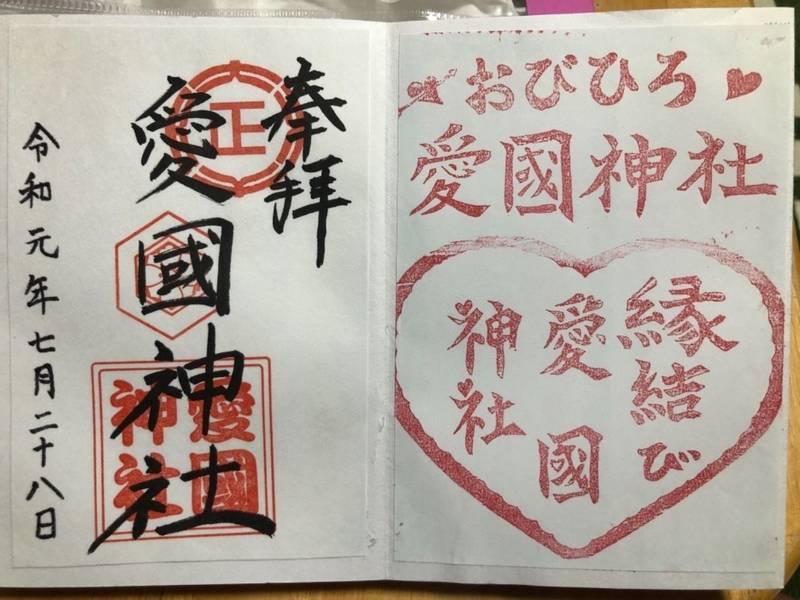 奉拝
正
愛國神社
愛國神社
令和元年七月二十八日
おびひろ
愛國神社
縁結び
愛國
神社